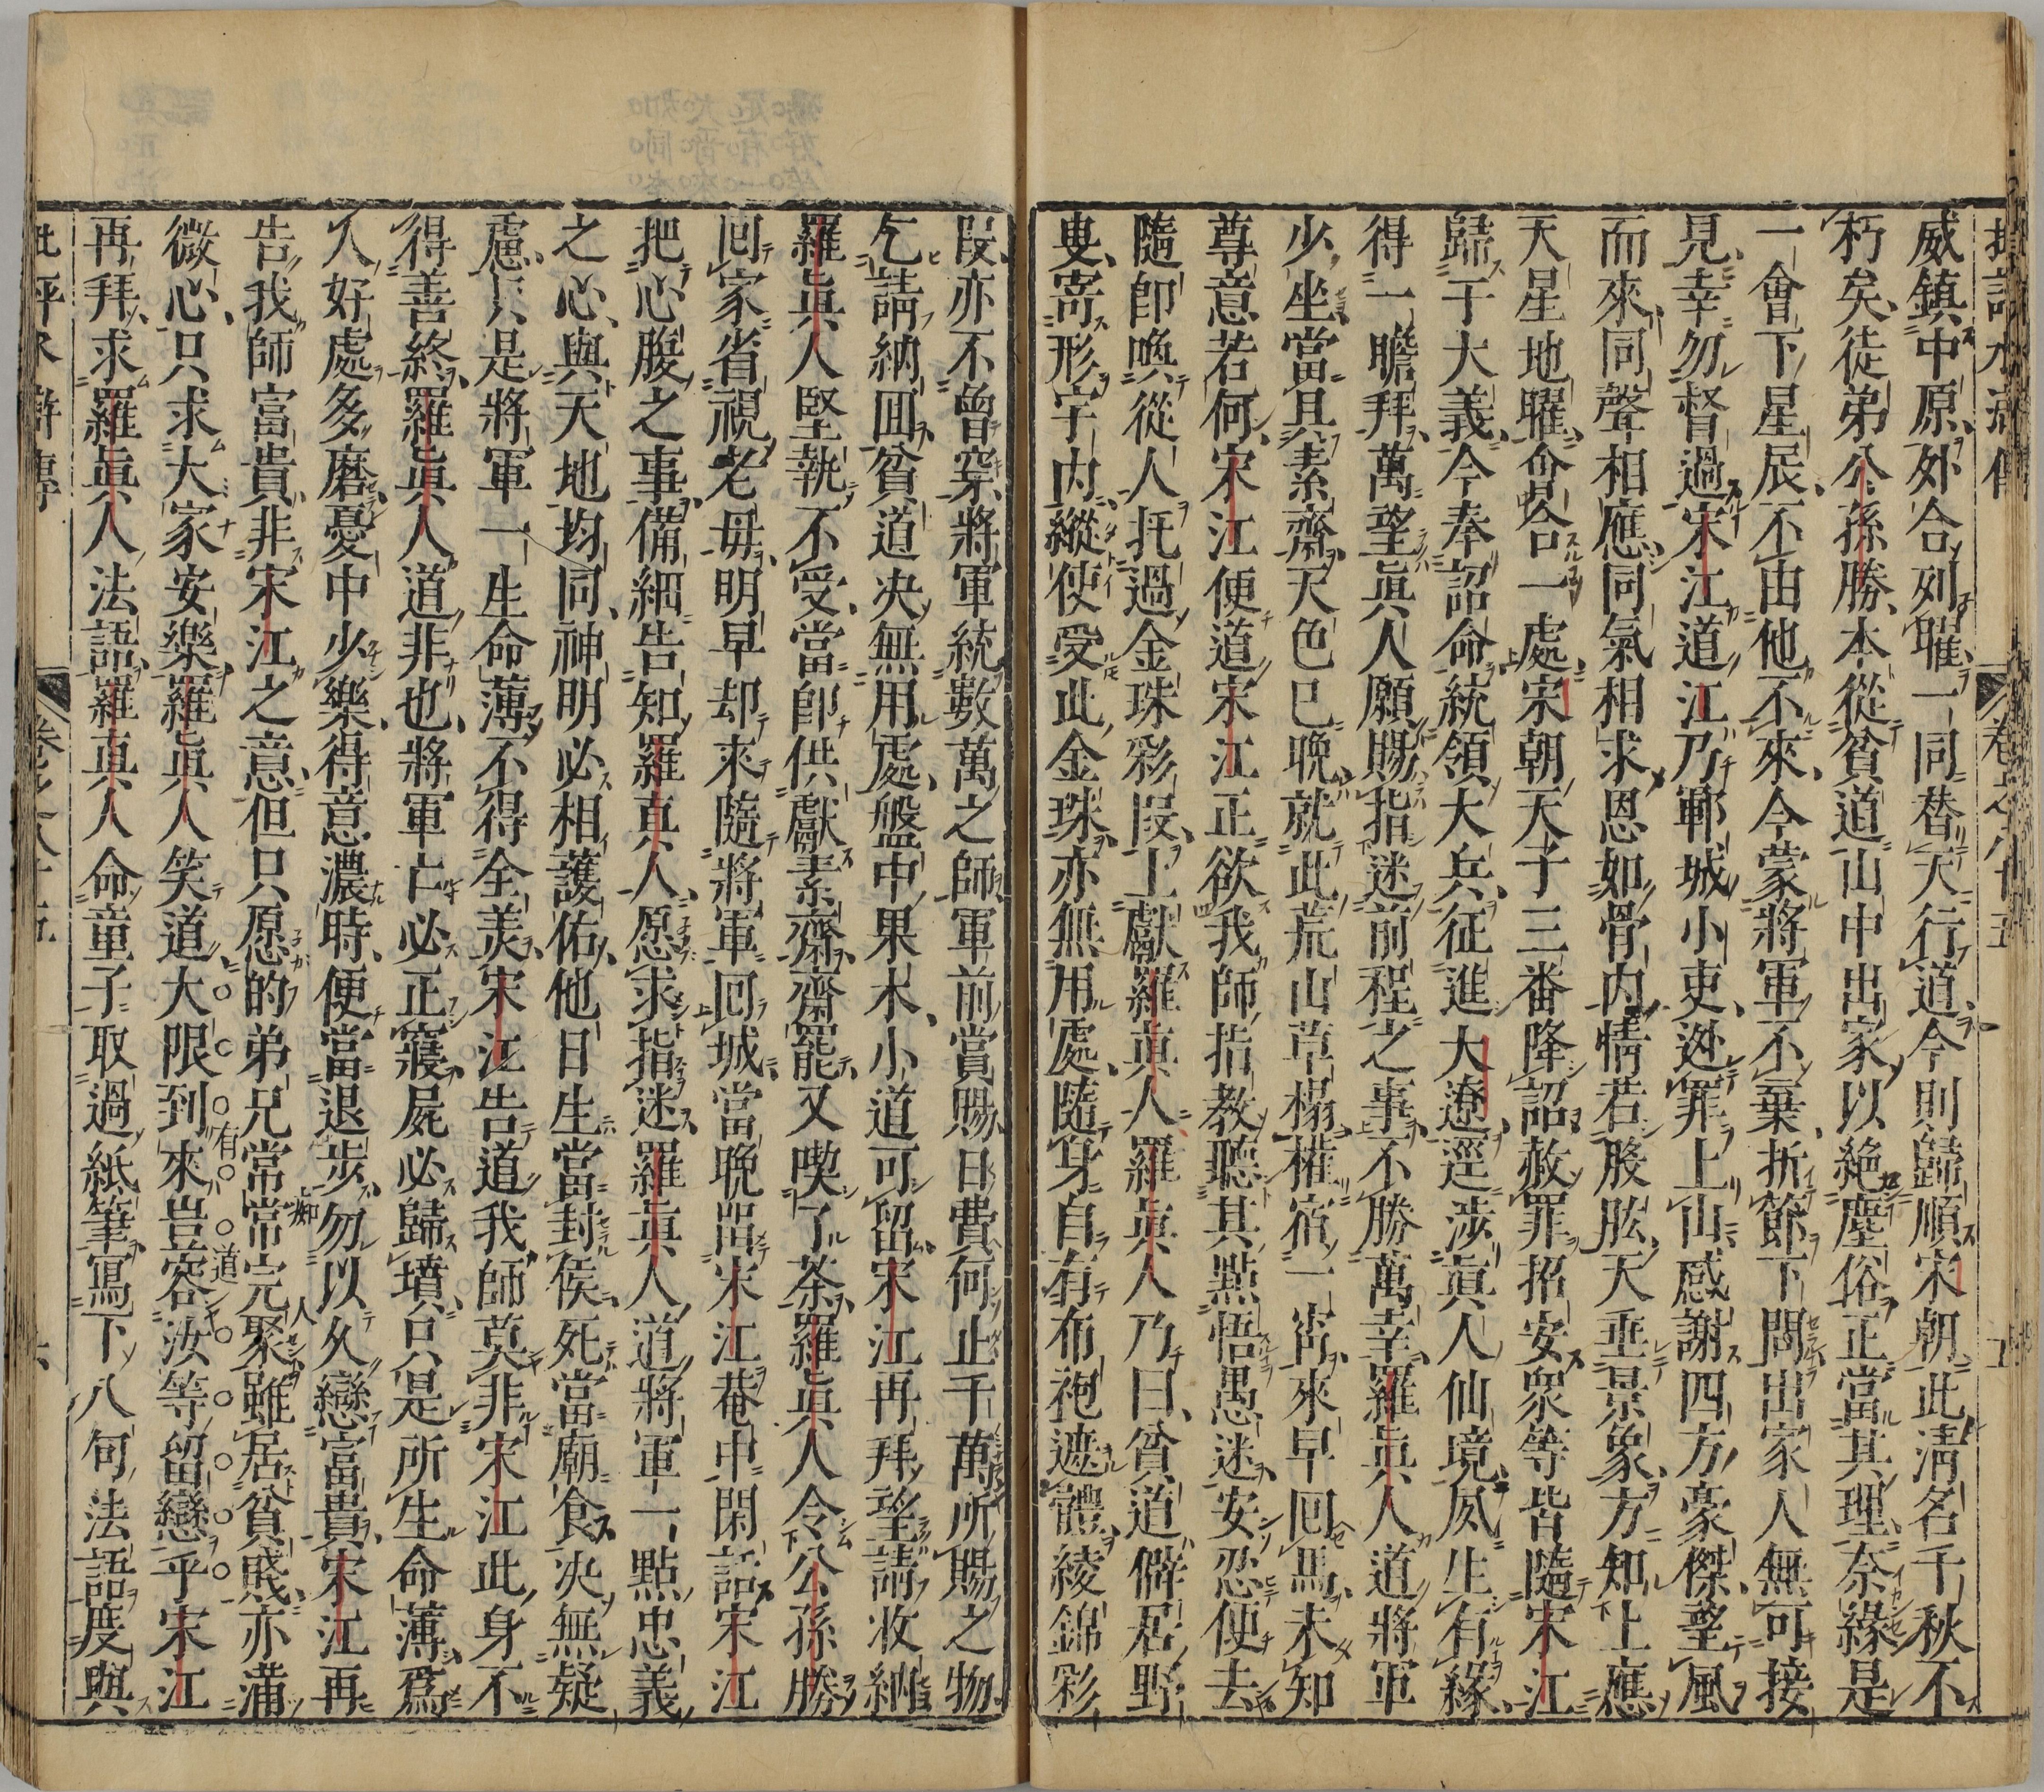 威鎮中原外合列曜一同替天行道今則歸順宋朝此清名千秋不
朽矣徒弟公孫勝本從貧道山中出家以絶塵俗正當其理奈緣是
一會下星辰不由他不來今蒙將軍不棄折節下問出家人無可接
見幸勿督過宋江道江乃鄆城小吏逃罪上山感謝四方豪傑望風
而來同聲相應同氣相求恩如骨内情若股肱天垂景象方知上應
天星地曜會合一處宋朝天子三番降詔赦罪招安衆等皆隨宋江
歸于大義今奉詔命統領大兵征進大遼逕涉眞人仙境夙生有緣
得一瞻拜萬望眞人願賜指迷前程之事不勝萬幸羅眞人道將軍
少坐當具素齋天色已晩就此荒山草榻權宿一宵來早回馬未知
尊意若何宋江便道宋江正欲我師指教聽其點悟愚迷安忍便去
隨卽喚從人托過金珠彩叚上獻羅眞人羅眞人乃曰貧道僻居野
叟寄形宇内縱使受此金珠亦無用處隨身自有布袍遮體綾錦彩
叚亦不曾穿將軍統數萬之師軍前賞賜日費何止千萬所賜之物
乞請納囬貧道决無用處盤中果木小道可留宋江再拜望請收納
羅眞人堅執不受當卽供獻素齋齋罷又喫了茶羅眞人令公孫勝
回家省視老母明早却來隨將軍囘城當晩留宋江菴中閑話宋江
把心腹之事備細告知羅真人愿求指迷羅眞人道將軍一點忠義
之心與天地均同神明必相護佑他日生當封侯死當廟食决無疑
慮只是將軍一生命薄不得全美宋江告道我師莫非宋江此身不
得善終羅眞人道非也將軍亡必正寢屍必歸墳只是所生命薄爲
人好處多磨憂中少樂得意濃時便當退步勿以久戀富貴宋江再
告我師富貴非宋江之意但只愿的弟兄常常完聚雖居貧賤亦滿
微心只求大家安樂羅眞人笑道大限到來豈容汝等留戀乎宋江
再拜求羅眞人法語羅真人命童子取過紙筆寫下八句法語度與